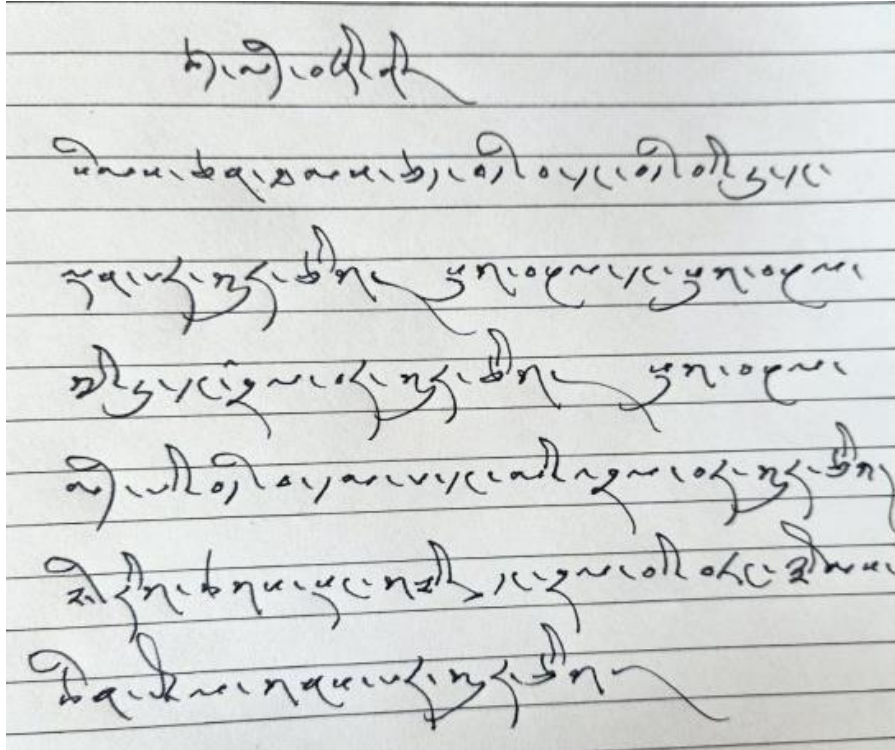 ཚད་མེད་བཞི།
སེམས་ཅན་ཐམས་ཅད་བདེ་བ་དང་བདེ་བའི་རྒྱུ་དང་
ལྡན་པར་གྱུར་ཅིག སྡུག་བསྔལ་དང་སྡུག་བསྔལ་
གྱི་རྒྱུ་དང་བྲལ་བར་གྱུར་ཅིག སྡུག་བསྔལ་
མེད་པའི་བདེ་བ་དམ་པ་དང་མི་འབྲལ་བར་གྱུར་ཅིག
ཉེ་རིང་ཆགས་སྡང་གཉིས་དང་བྲལ་བའི་བཏང་སྙོམས་
ཆེན་པོ་ལ་གནས་པར་གྱུར་ཅིག